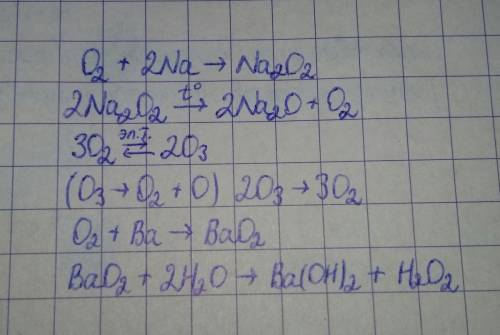 O₂ + 2Na → Na₂O₂
2Na₂O₂ →^{t°} 2Na₂O + O₂
3O₂ ⇄^{эл.т.} 2O₃
(O₃ → O₂ + O) 2O₃ → 3O₂
O₂ + Ba → BaO₂
BaO₂ + 2H₂O → Ba(OH)₂ + H₂O₂